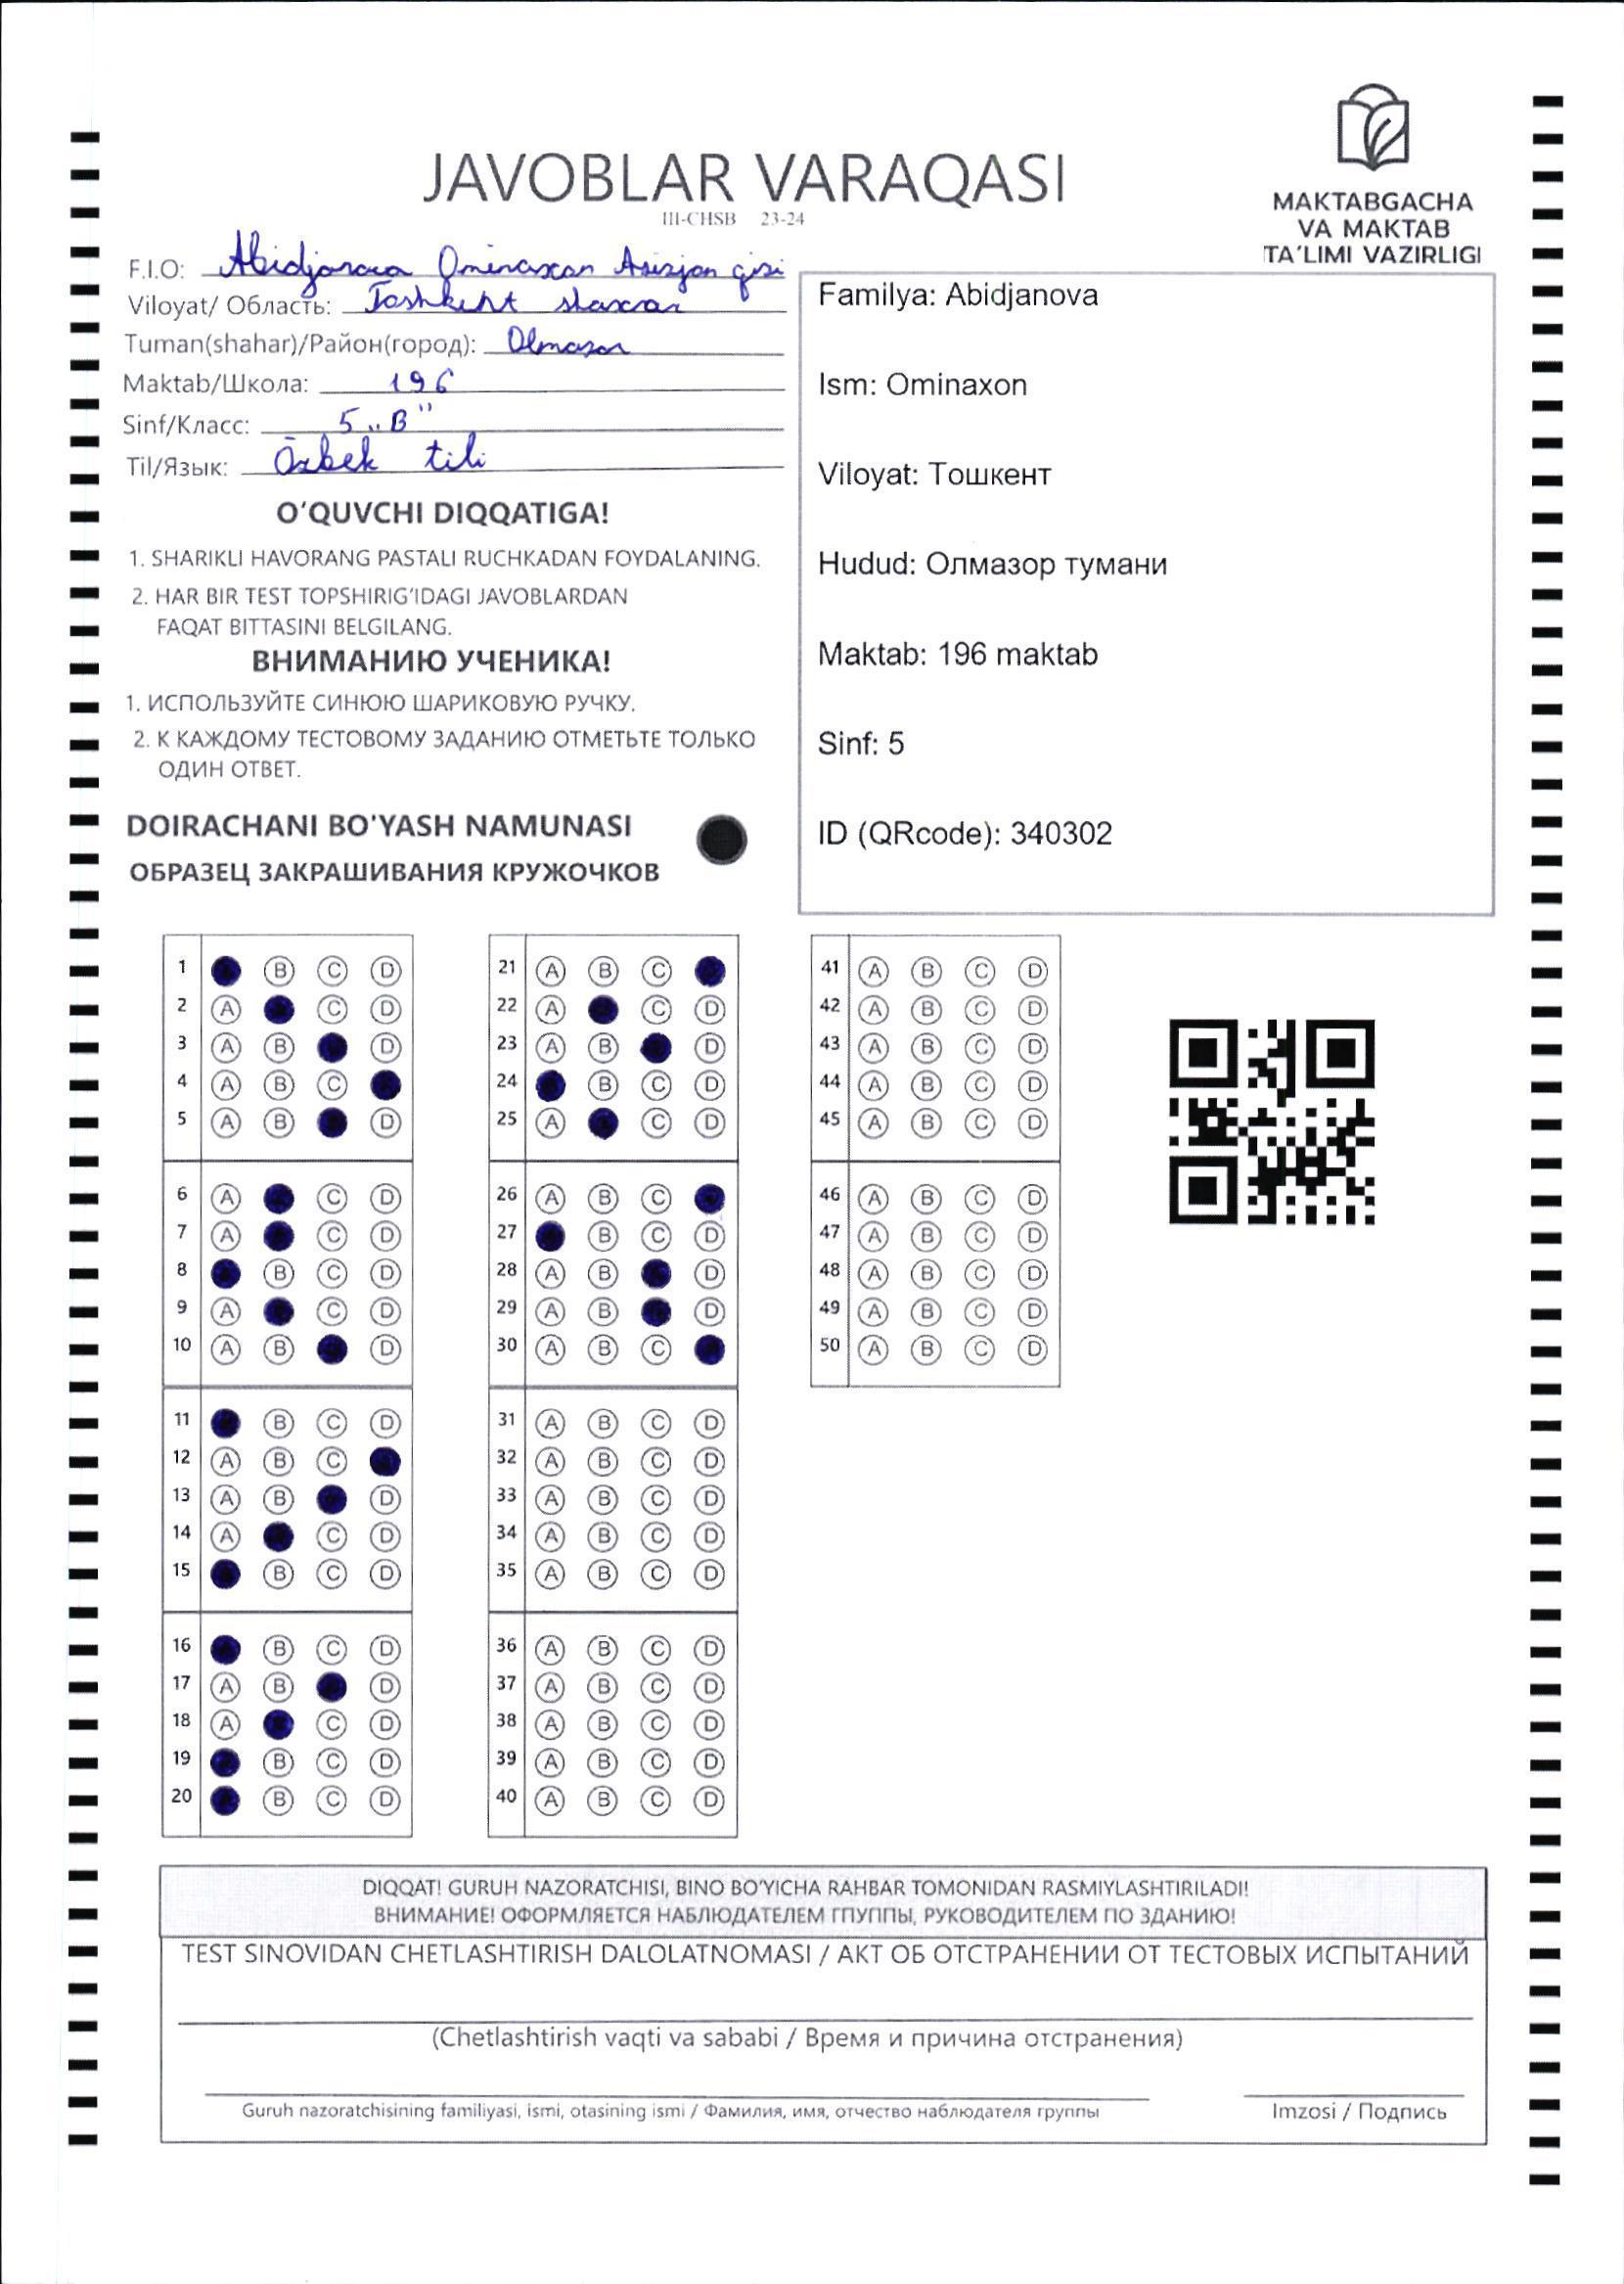 JAVOBLAR VARAQASI
III-CHSB 23-24
MAKTABGACHA
VA MAKTAB
TA'LIMI VAZIRLIGI
F.I.O: Abidjanova Ominaxon Asisjon qizi
Viloyat/ Область: Toshkent shaxar
Tuman(shahar)/Район(город): Olmazor
Maktab/Школа: 196
Sinf/Класс: 5 „B"
Til/Язык: Ozbek tili
O'QUVCHI DIQQATIGA!
1. SHARIKLI HAVORANG PASTALI RUCHKADAN FOYDALANING.
2. HAR BIR TEST TOPSHIRIG'IDAGI JAVOBLARDAN
FAQAT BITTASINI BELGILANG.
ВНИМАНИЮ УЧЕНИКА!
1. ИСПОЛЬЗУЙТЕ СИНЮЮ ШАРИКОВУЮ РУЧКУ.
2. К КАЖДОМУ ТЕСТОВОМУ ЗАДАНИЮ ОТМЕТЬТЕ ТОЛЬКО
ОДИН ОТВЕТ.
DOIRACHANI BO'YASH NAMUNASI
ОБРАЗЕЦ ЗАКРАШИВАНИЯ КРУЖОЧКОВ
Familya: Abidjanova
Ism: Ominaxon
Viloyat: Тошкент
Hudud: Олмазор тумани
Maktab: 196 maktab
Sinf: 5
ID (QRcode): 340302
1 B C D
2 A C D
3 A B D
4 A B C
5 A B D
6 A C D
7 A C D
8 B C D
9 A C D
10 A B D
11 B C D
12 A B C
13 A B D
14 A C D
15 B C D
16 B C D
17 A B D
18 A C D
19 B C D
20 B C D
21 A B C
22 A C D
23 A B D
24 B C D
25 A C D
26 A B C
27 B C D
28 A B D
29 A B D
30 A B C
31 A B C D
32 A B C D
33 A B C D
34 A B C D
35 A B C D
36 A B C D
37 A B C D
38 A B C D
39 A B C D
40 A B C D
41 A B C D
42 A B C D
43 A B C D
44 A B C D
45 A B C D
46 A B C D
47 A B C D
48 A B C D
49 A B C D
50 A B C D
DIQQAT! GURUH NAZORATCHISI, BINO BO'YICHA RAHBAR TOMONIDAN RASMIYLASHTIRILADI!
ВНИМАНИЕ! ОФОРМЛЯЕТСЯ НАБЛЮДАТЕЛЕМ ГПУППЫ, РУКОВОДИТЕЛЕМ ПО ЗДАНИЮ!
TEST SINOVIDAN CHETLASHTIRISH DALOLATNOMASI / АКТ ОБ ОТСТРАНЕНИИ ОТ ТЕСТОВЫХ ИСПЫТАНИЙ
(Chetlashtirish vaqti va sababi / Время и причина отстранения)
Guruh nazoratchisining familiyasi, ismi, otasining ismi / Фамилия, имя, отчество наблюдателя группы
Imzosi / Подпись